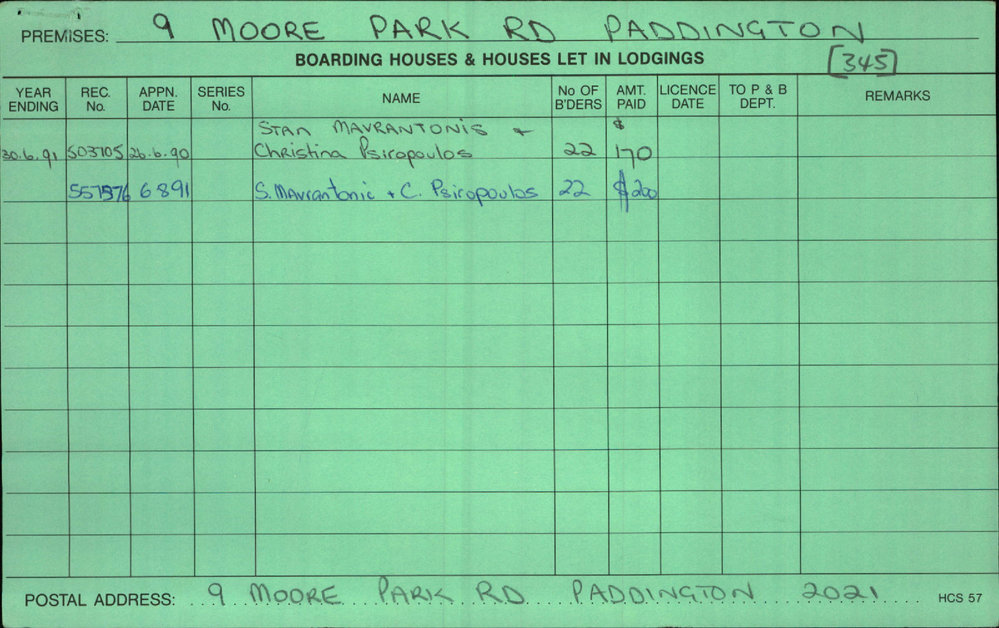 PREMISES: 9 MOORE PARK RD PADDINGTON
BOARDING HOUSES & HOUSES LET IN LODGINGS [345]
YEAR ENDING REC. No. APPN. DATE SERIES No. NAME No OF B'DERS AMT. PAID LICENCE DATE TO P & B DEPT. REMARKS
STAN MAVRANTONIS + $
30.6.91 503705 26.6.90 Christina Psiropoulos 22 170
557576 6 891 S. Mavrantonic + C. Psiropoulos 22 $200
POSTAL ADDRESS: 9 MOORE PARK RD PADDINGTON 2021 HCS 57